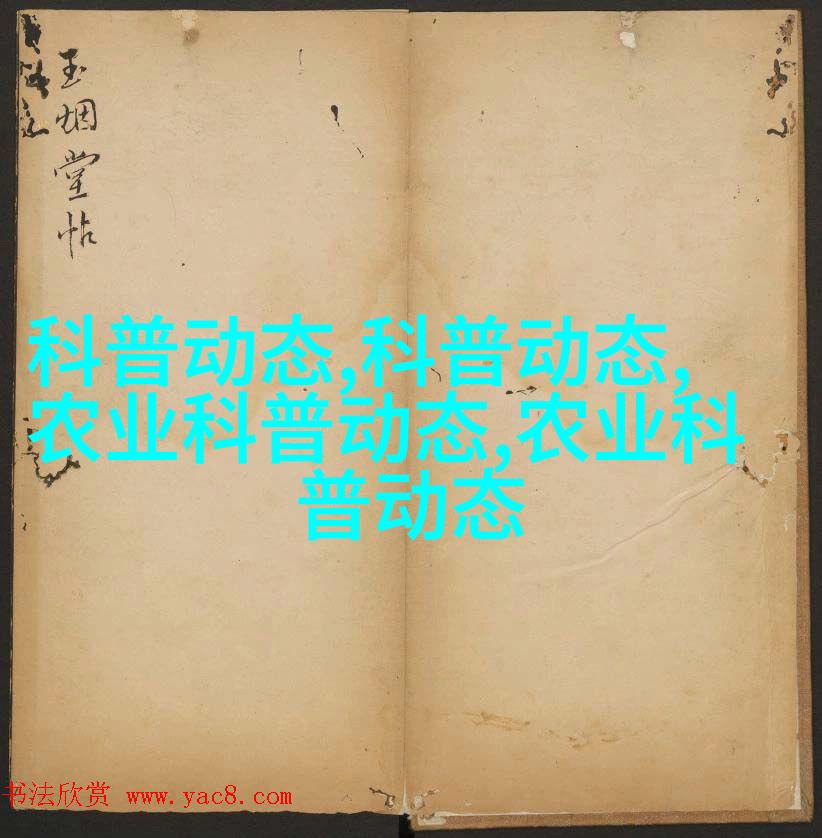 玉烟堂帖
科普动态,科普动态,
农业科普动态,农业科
普动态
书法欣赏 www.yac8.com